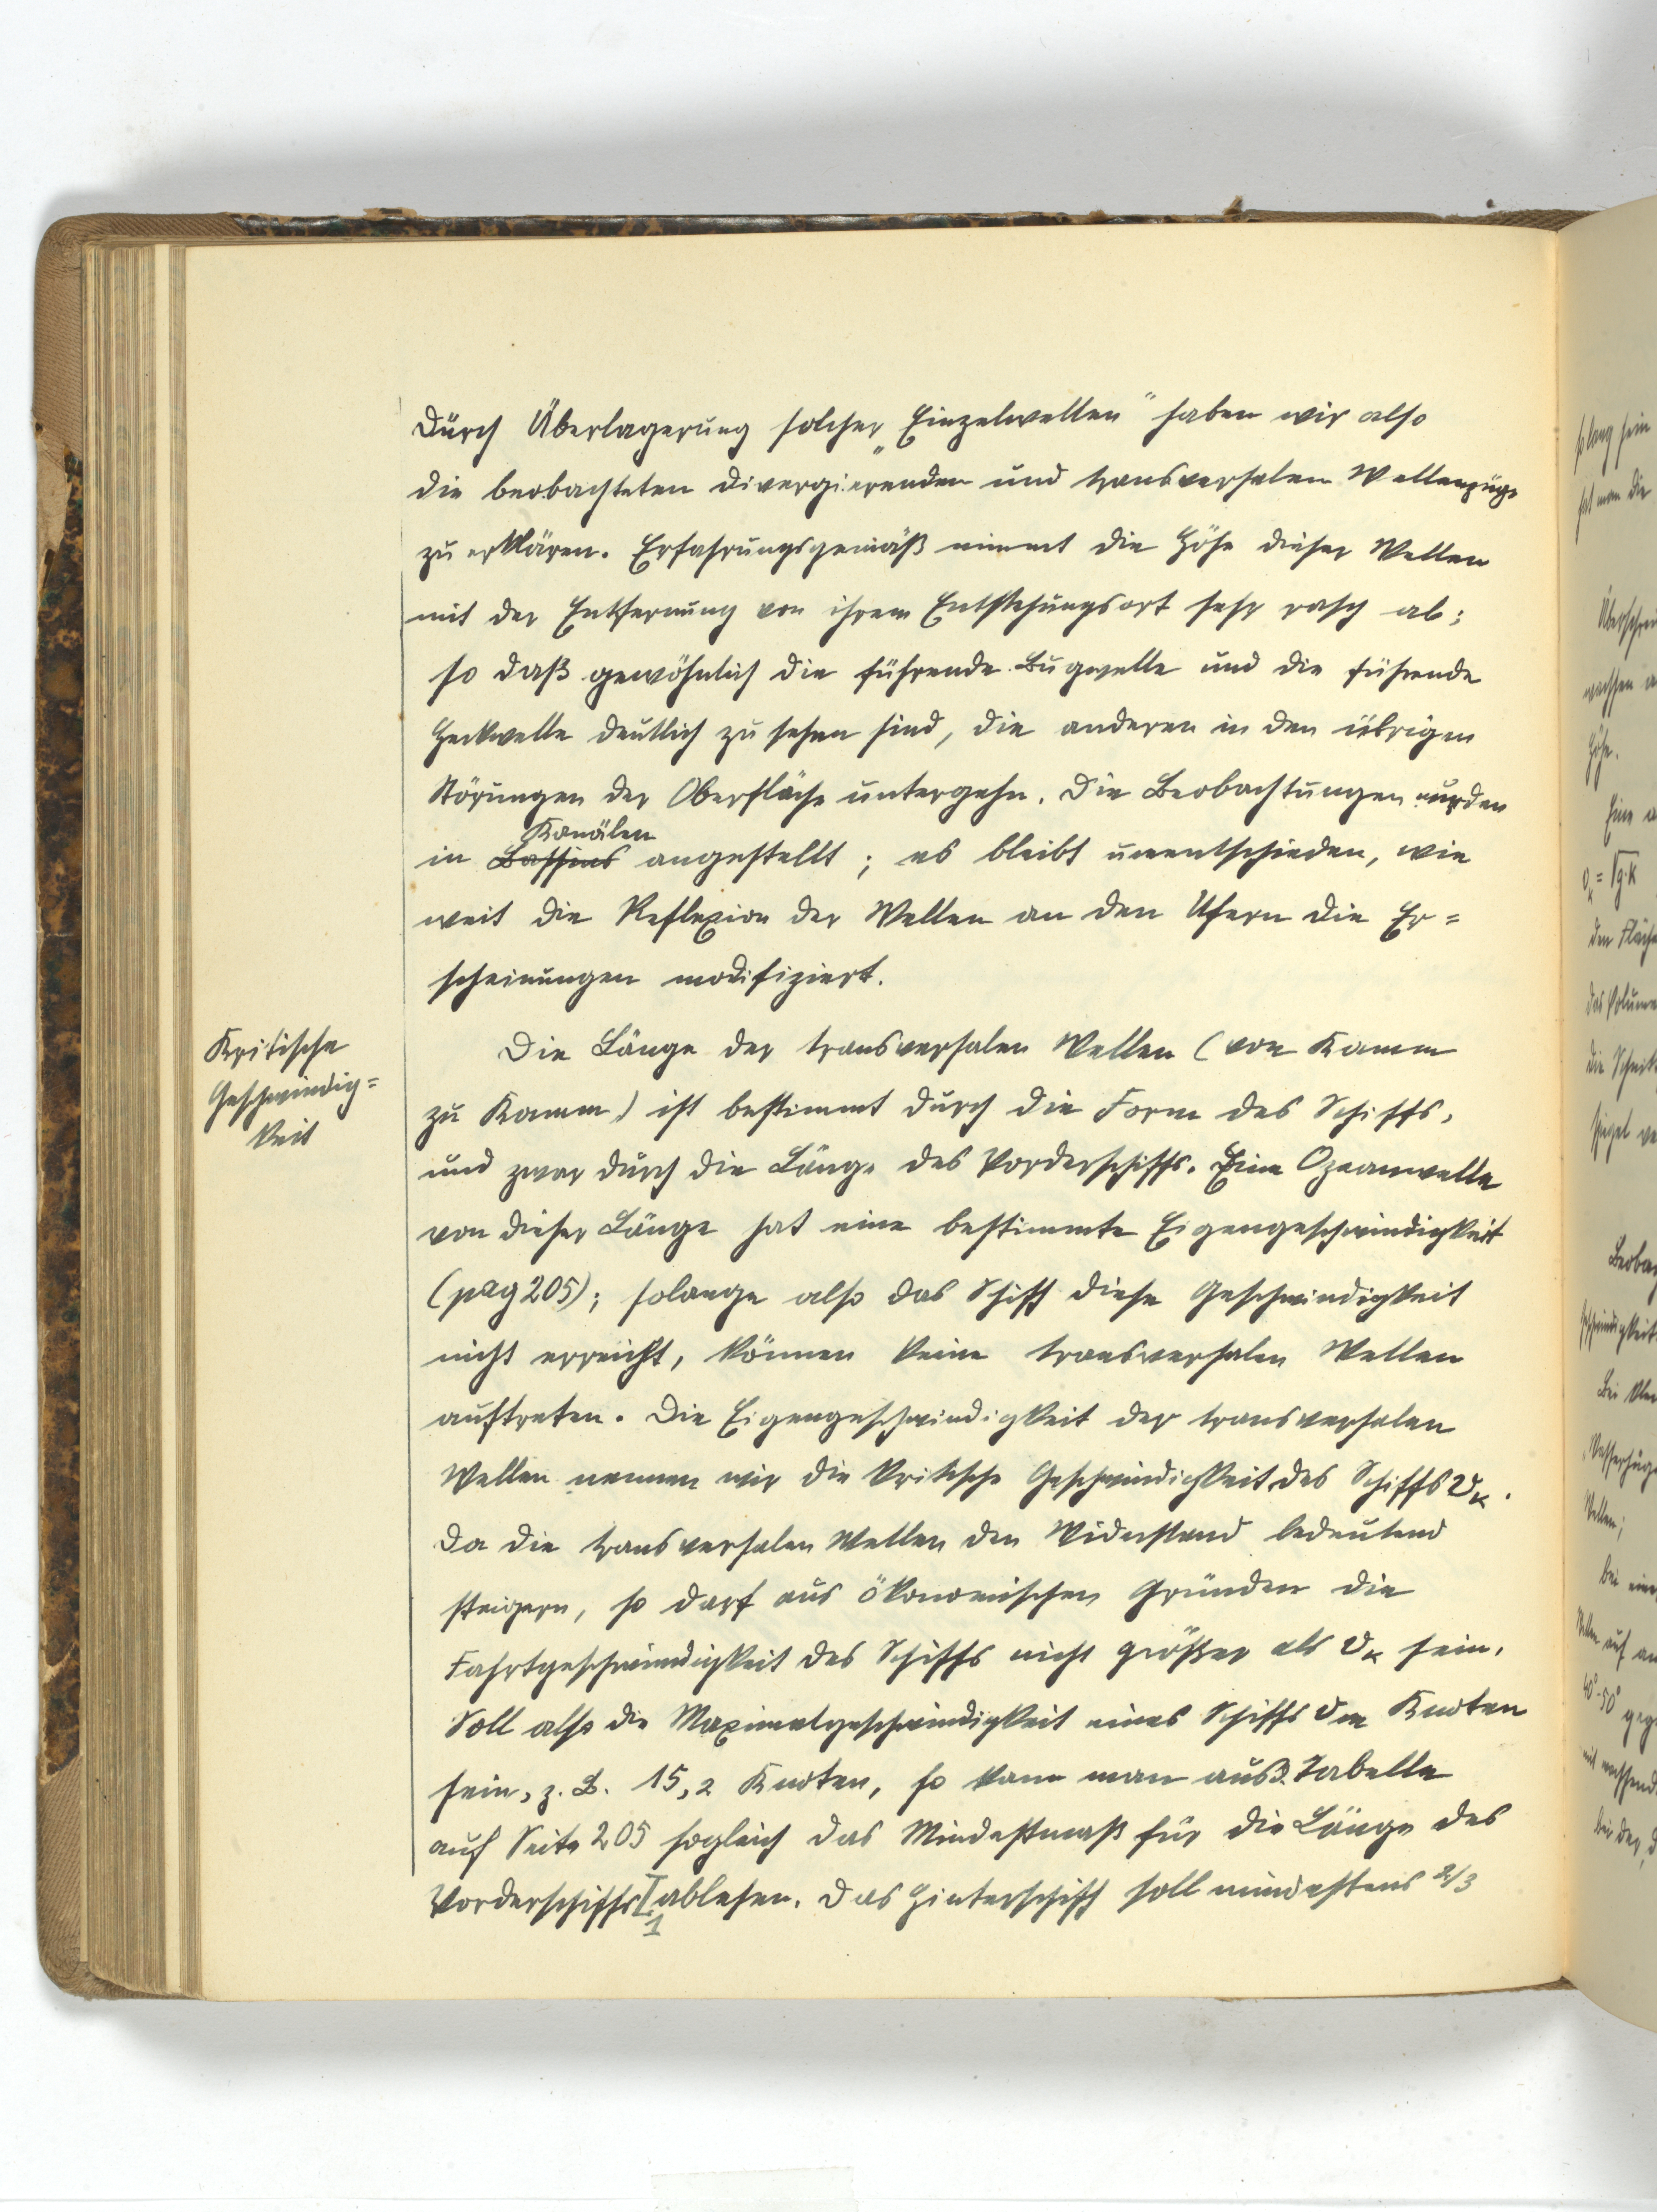 Durch Überlagerung solcher „Einzelwellen“ haben wir also
die beobachteten divergierenden und transversalen Wellenzüge
zu erklären. Erfahrungsgemäß nimmt die Höhe dieser Wellen
mit der Entfernung von ihrem Entstehungsort sehr rasch ab;
so daß gewöhnlich die führende Bugwelle und die führende
Heckwelle deutlich zu sehen sind, die anderen in den übrigen
Störungen der Oberfläche untergehn. Die Beobachtungen wurden
Kanälen
in Bassins angestellt; es bleibt unentschieden, wie
weit die Reflexion der Wellen an den Ufern die Er=
scheinungen modifiziert.
Kritische
Geschwindig=
keit
Die Länge der transversalen Wellen (von Kamm
zu Kamm) ist bestimmt durch die Form des Schiffs,
und zwar durch die Länge des Vorderschiffs. Eine Ozeanwelle
von dieser Länge hat eine bestimmte Eigengeschwindigkeit
(pag 205); solange also das Schiff diese Geschwindigkeit
nicht erreicht, können keine transversalen Wellen
auftreten. Die Eigengeschwindigkeit der transversalen
Wellen nennen wir die kritische Geschwindigkeit des Schiffs vₖ.
Da die transversalen Wellen den Widerstand bedeutend
steigern, so darf aus ökonomischen Gründen die
Fahrtgeschwindigkeit des Schiffs nicht größer als vₖ sein.
Soll also die Maximalgeschwindigkeit eines Schiffs vₘ Knoten
sein, z. B. 15,2 Knoten, so kann man aus d. Tabelle
auf Seite 205 sogleich das Mindestmaß für die Länge des
Vorderschiffs ablesen. Das Hinterschiff soll mindestens 2/3
1